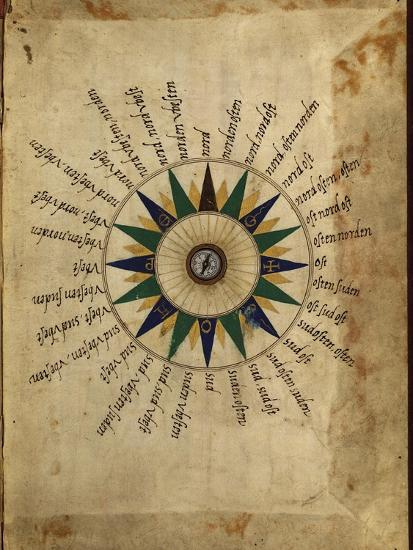 nord
norden osten
nord, nord ost
nord, osten norden
nord ost
nord osten, osten
ost nord ost
osten norden
Ost
osten suden
ost sud ost
sudosten, osten
sud ost
sudosten suden
sud, sud ost
suden, osten
sud
suden Vbesten
sud sud Vbest
sud, Vbesten suden
sud, Vbest
sud Vbesten, vbesten
Vbest, sud Vbest
Vbesten suden
Vbest
Vbesten, norden
Vbest, nord Vbest
nord Vbesten, vbesten
nord Vbest
nord Vbesten, norden
nord, nord Vbest
norden Vbesten